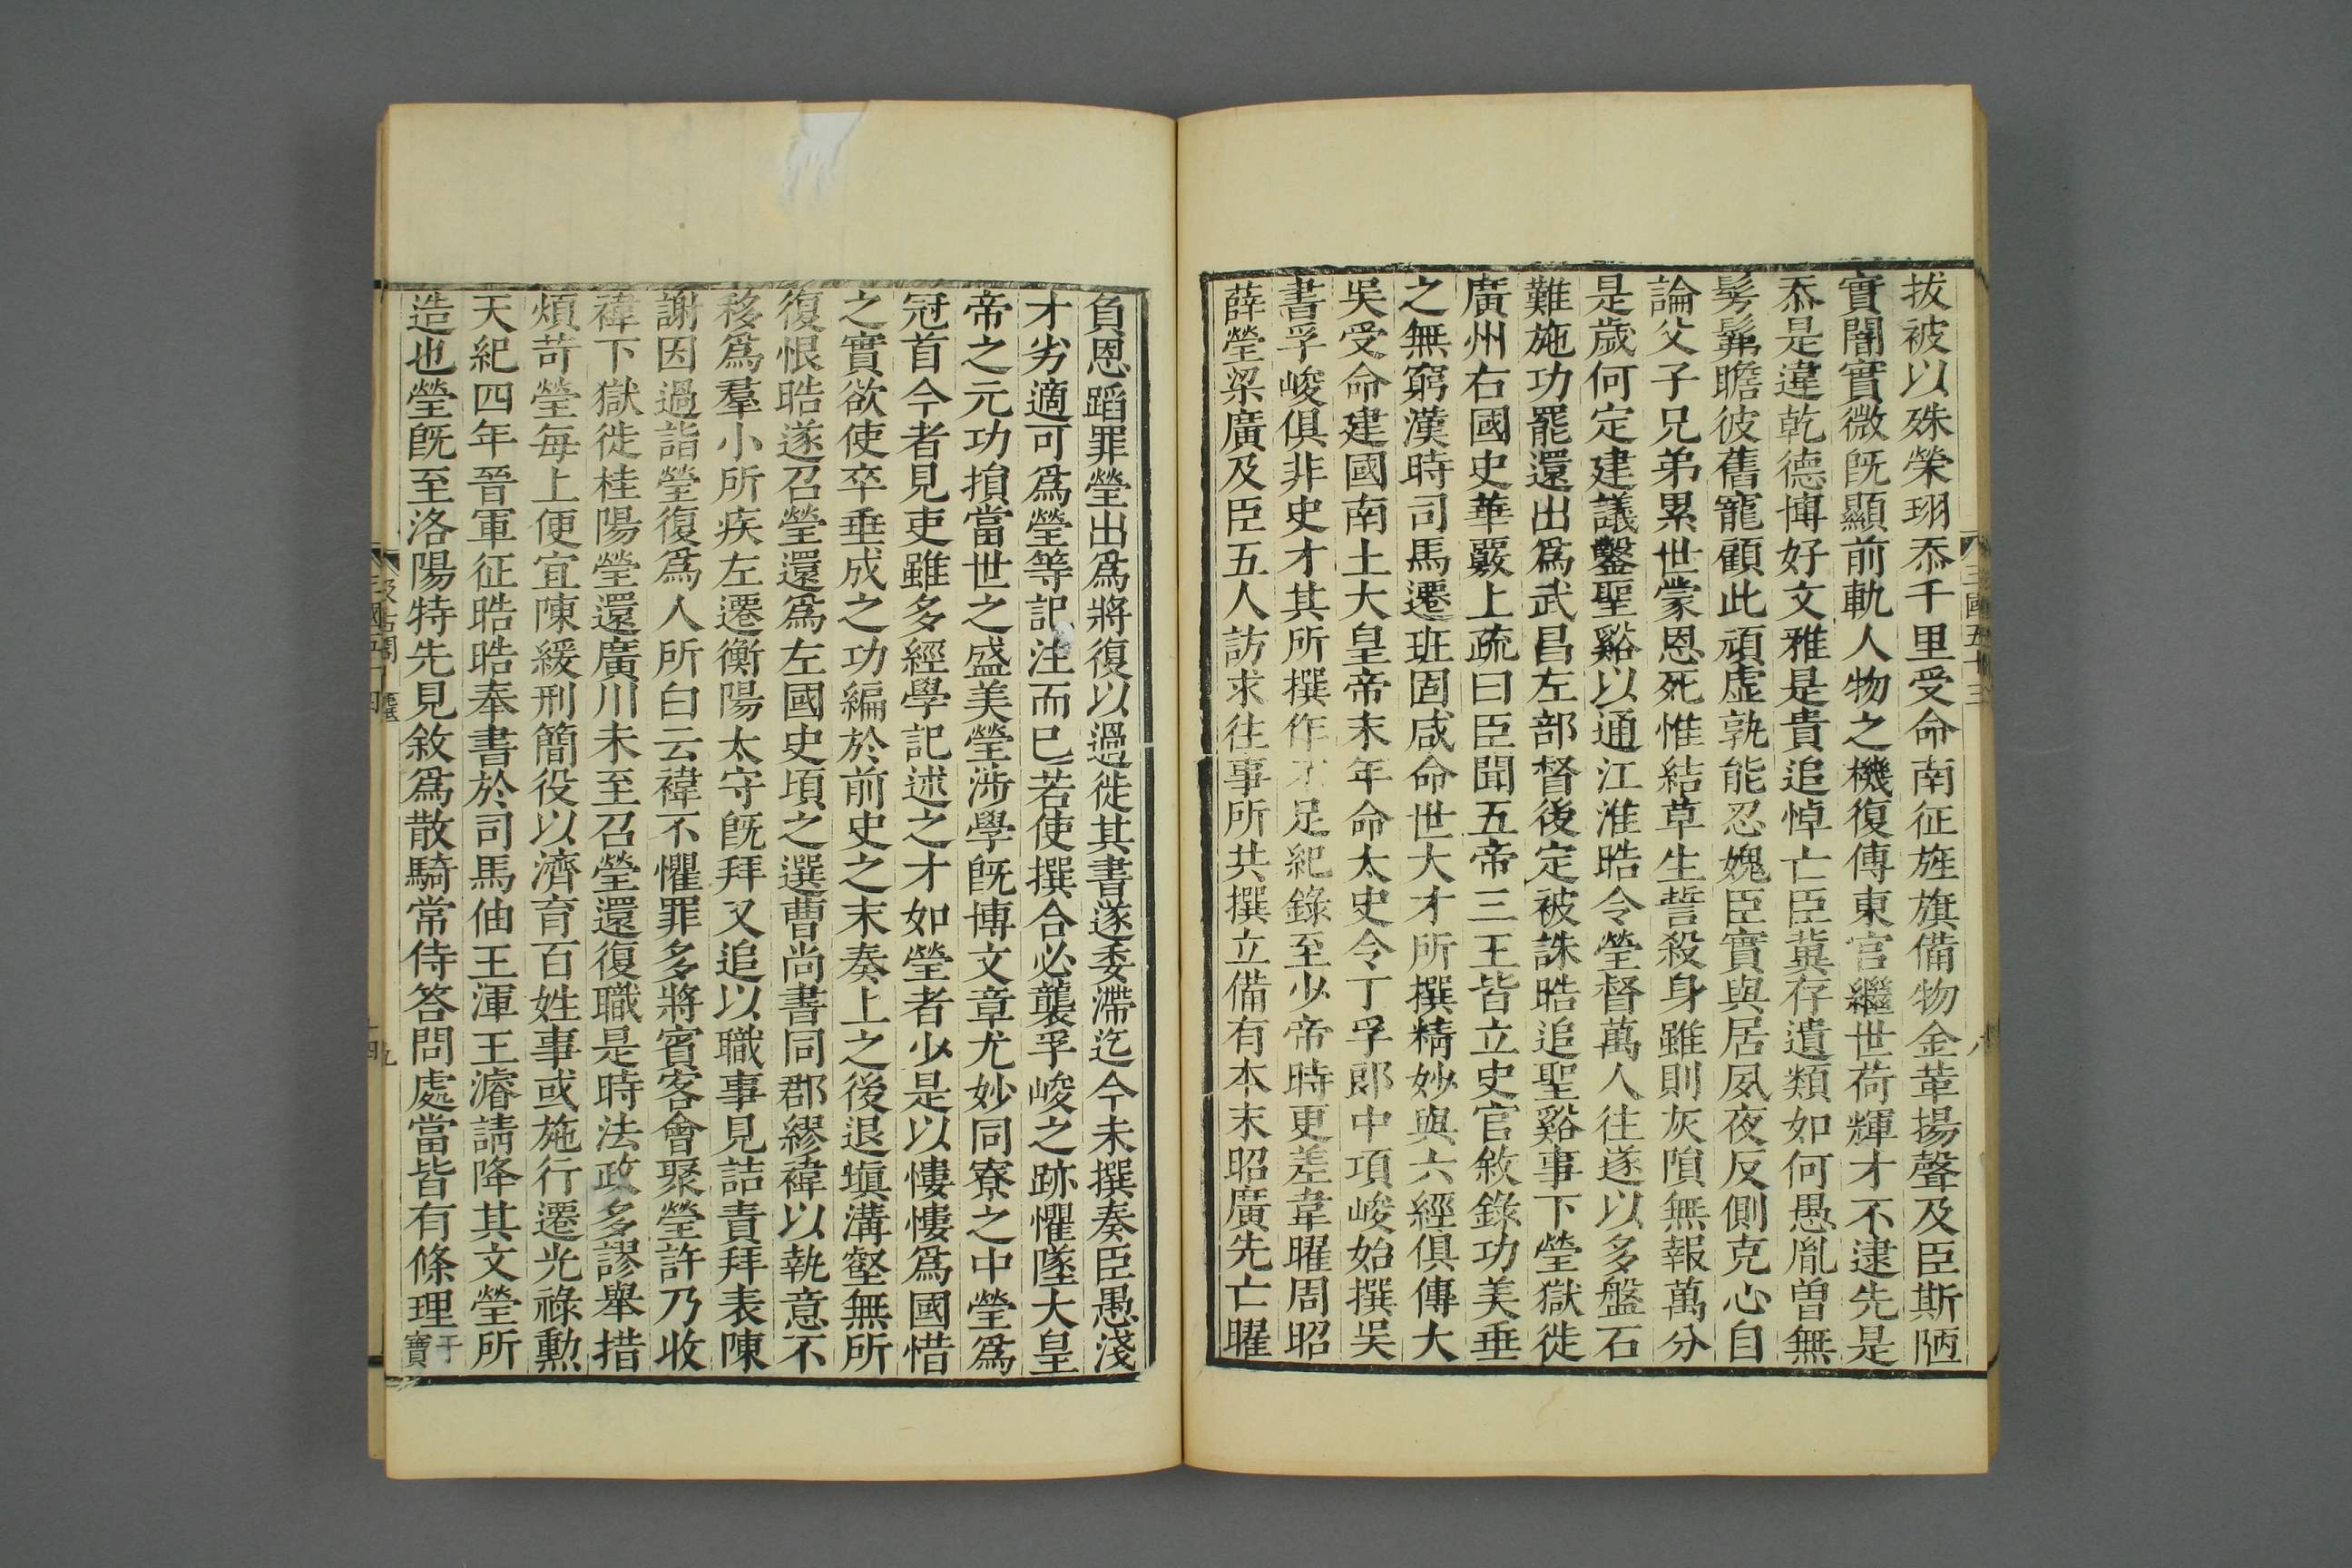 拔被以殊榮珝忝千里受命南征旌旗備物金革揚聲及臣斯陋
實闇實微旣顯前軌人物之機復傅東宮繼世荷輝才不逮先是
忝是違乾德博好文雅是貴追悼亡臣冀存遺類如何愚胤曽無
髣髴瞻彼舊寵顧此頑虛孰能忍媿臣實與居夙夜反側克心自
論父子兄弟累世蒙恩死惟結草生誓殺身雖則灰隕無報萬分
是歲何定建議鑿聖谿以通江淮晧令瑩督萬人往遂以多盤石
難施功罷還出爲武昌左部督後定被誅晧追聖谿事下瑩獄徙
廣州右國史華覈上疏曰臣聞五帝三王皆立史官敘錄功美垂
之無窮漢時司馬遷班固咸命世大才所撰精妙與六經俱傳大
吳受命建國南土大皇帝末年命太史令丁孚郎中項峻始撰吳
書孚峻俱非史才其所撰作不足紀錄至少帝時更差韋曜周昭
薛瑩梁廣及臣五人訪求往事所共撰立備有本末昭廣先亡曜
三國五十三
八
負恩蹈罪瑩出爲將復以過徙其書遂委滯迄今未撰奏臣愚淺
才劣適可爲瑩等記注而已若使撰合必襲孚峻之跡懼墜大皇
帝之元功損當世之盛美瑩涉學旣博文章尤妙同寮之中瑩爲
冠首今者見吏雖多經學記述之才如瑩者少是以慺慺爲國惜
之實欲使卒垂成之功編於前史之末奏上之後退塡溝壑無所
復恨晧遂召瑩還爲左國史頃之選曹尚書同郡繆禕以執意不
移爲羣小所疾左遷衡陽太守旣拜又追以職事見詰責拜表陳
謝因過詣瑩復爲人所白云禕不懼罪多將賓客會聚瑩許乃收
禕下獄徙桂陽瑩還廣川未至召瑩還復職是時法政多謬舉措
煩苛瑩每上便宜陳緩刑簡役以濟育百姓事或施行遷光祿勲
天紀四年晉軍征晧晧奉書於司馬伷王渾王濬請降其文瑩所
造也瑩旣至洛陽特先見敘爲散騎常侍答問處當皆有條理于寶
汲古閣
九